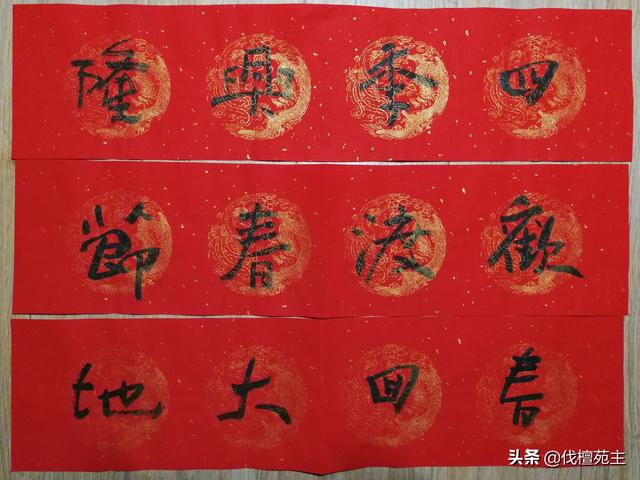 四季興隆
歡渡春節
春回大地
头条 @伐檀苑主